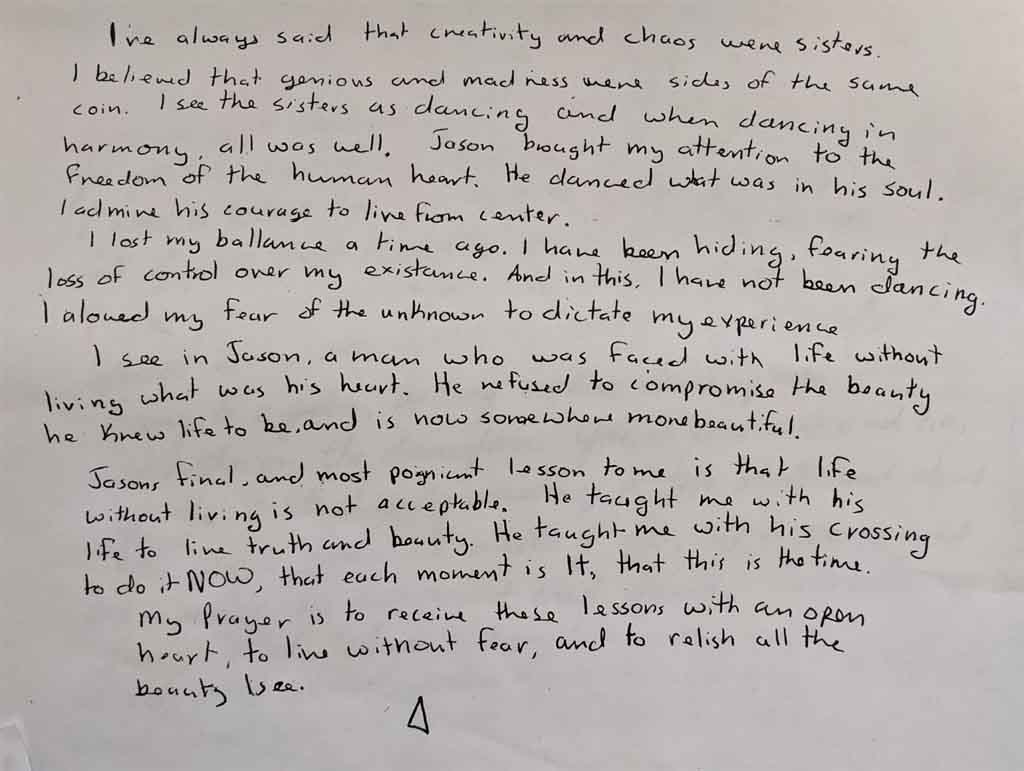 I've always said that creativity and chaos were sisters.
I believed that genious and madness were sides of the same
coin. I see the sisters as dancing and when dancing in
harmony, all was well. Jason brought my attention to the
freedom of the human heart. He danced what was in his soul.
I admire his courage to live from center.
I lost my ballance a time ago. I have been hiding, fearing the
loss of control over my existance. And in this, I have not been dancing.
I aloued my fear of the unknown to dictate my experience
I see in Jason, a man who was faced with life without
living what was his heart. He refused to compromise the beauty
he knew life to be, and is now somewhere more beautiful.
Jasons final, and most poignient lesson to me is that life
without living is not acceptable. He taught me with his
life to live truth and beauty. He taught me with his crossing
to do it NOW, that each moment is It, that this is the time.
My Prayer is to receive these lessons with an open
heart, to live without fear, and to relish all the
beauty I see.